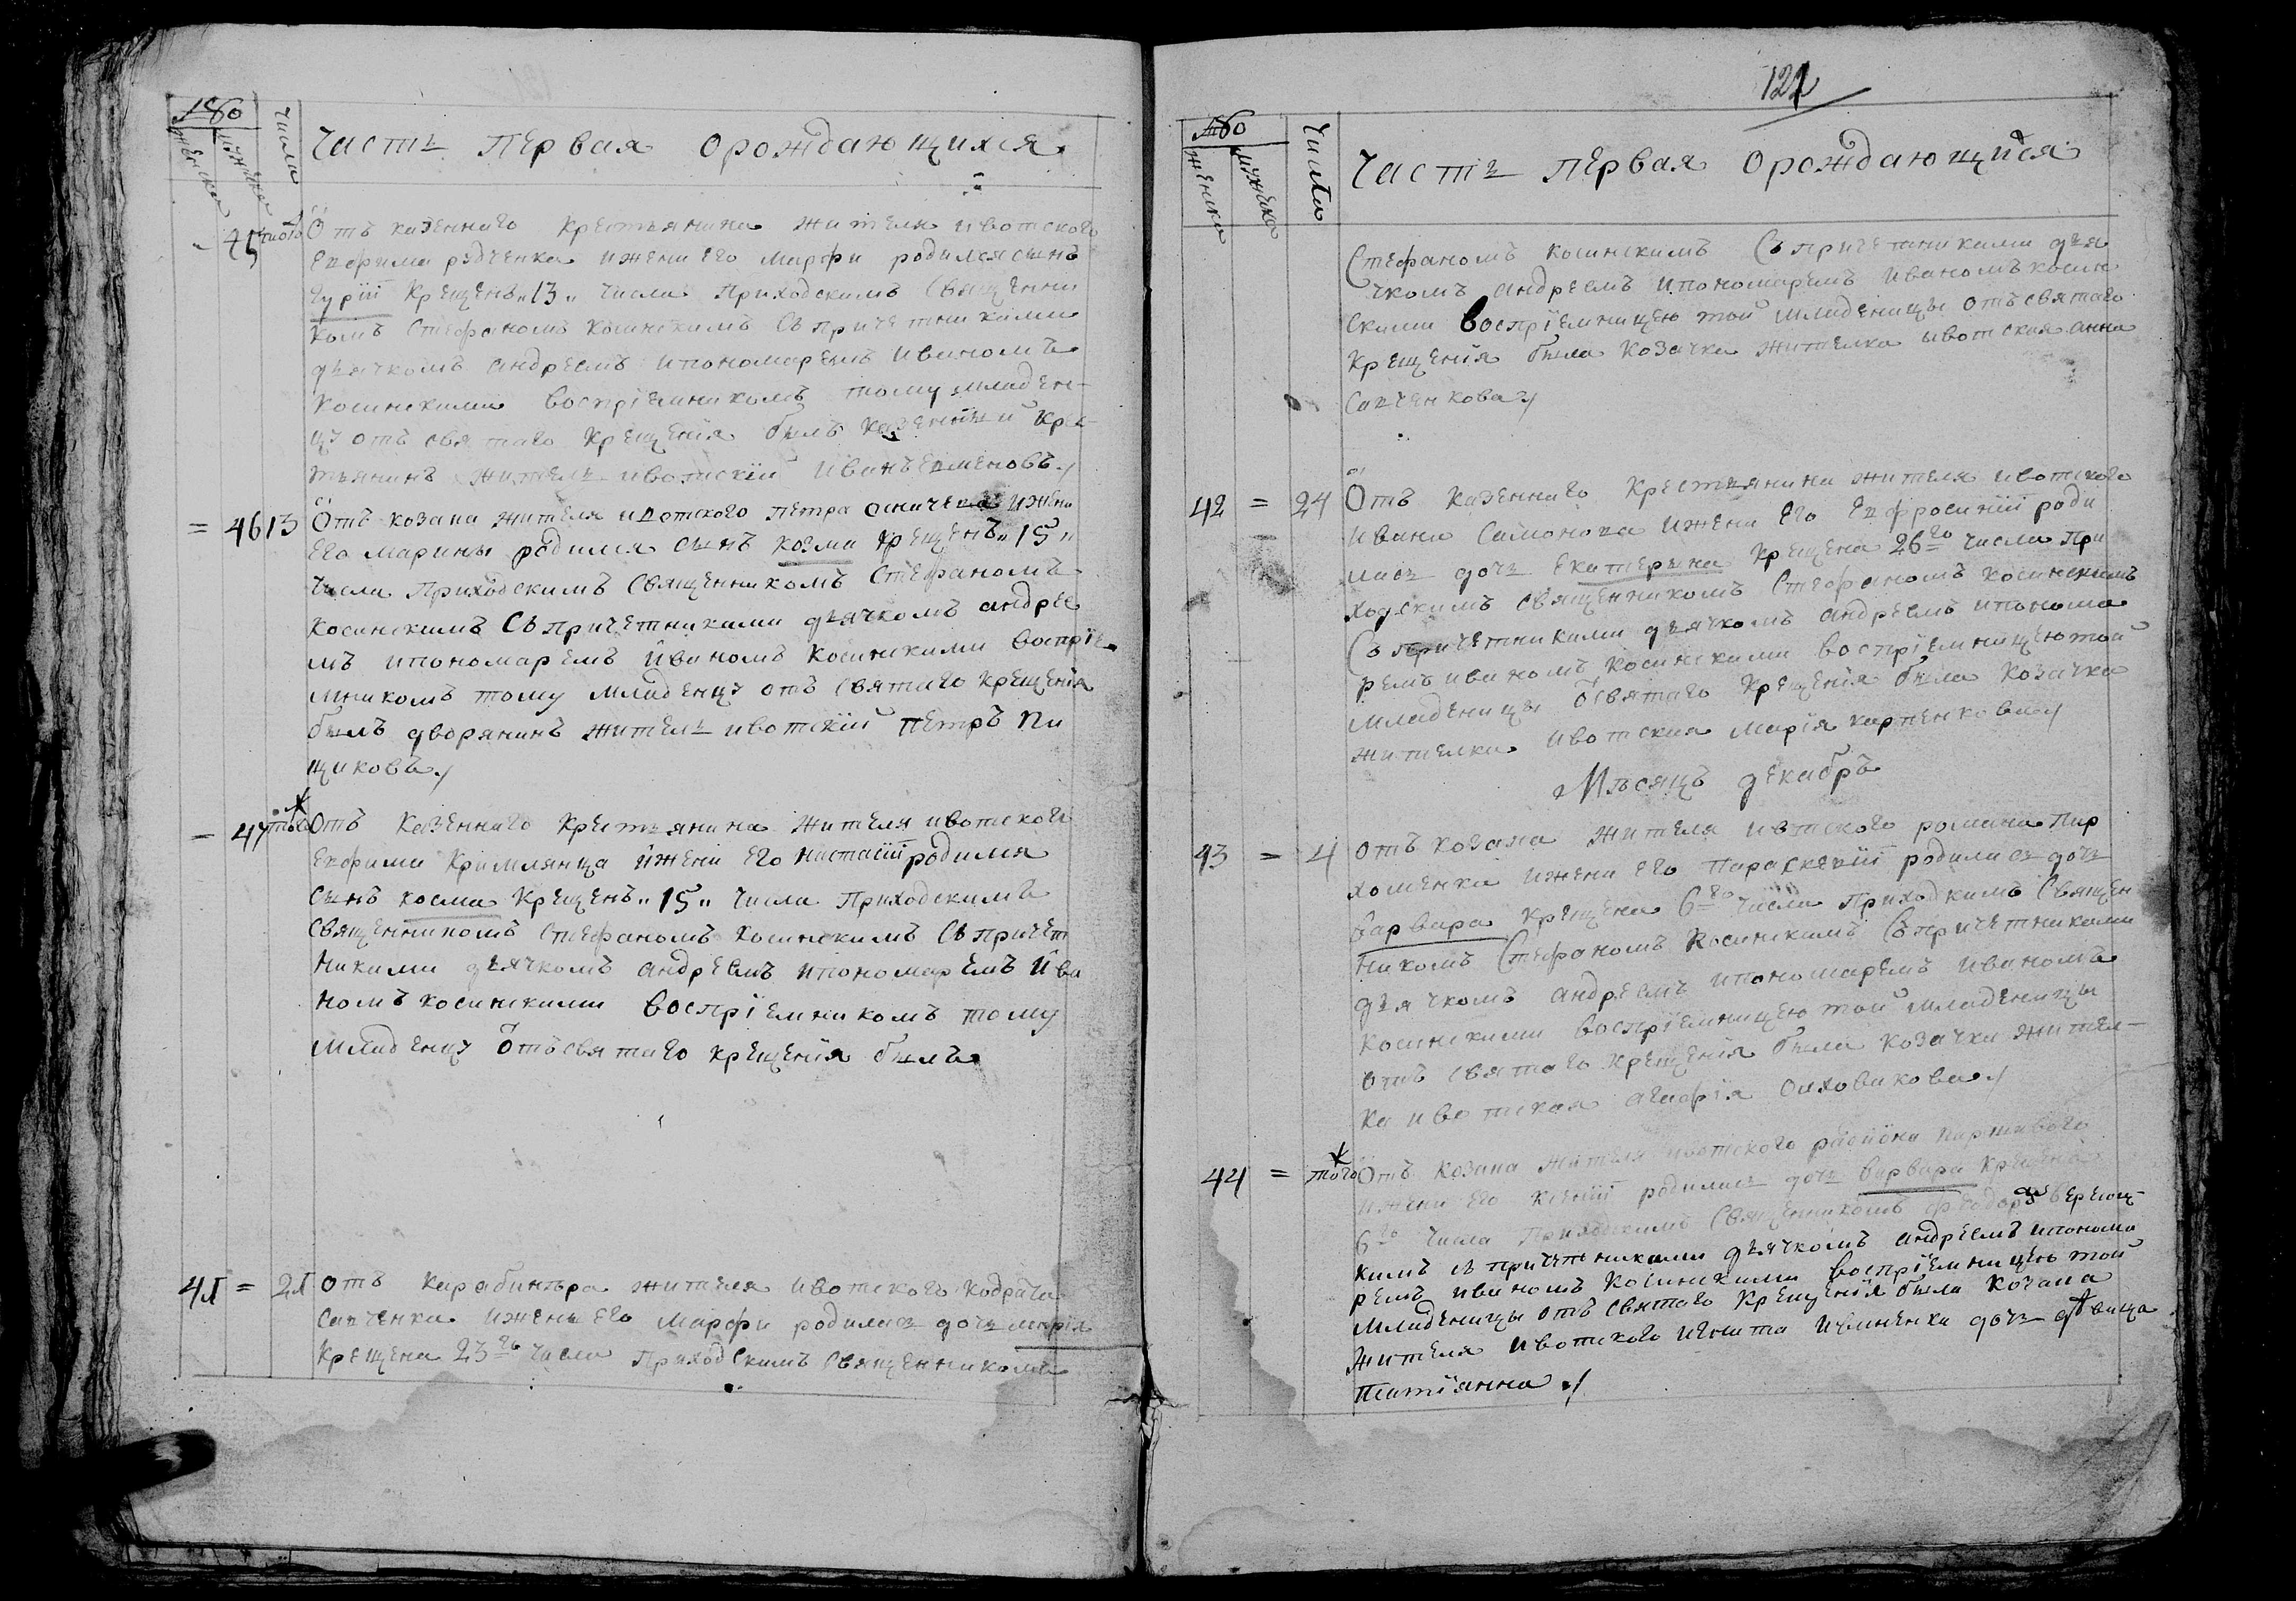 Число
Часть первая орождающихся
45 того Отъ казенного крестьянина жителя ивотского
Евфима рудченка ижени его марфи родился сынъ
гурїй крещенъ „13„ числа приходскимъ священни
комъ Стефаномъ косинскимъ Съ причетниками
дьячкомъ андреемъ ипономаремъ иваномъ
косинскими воспрїемникомъ тому младен-
цу отъ святаго крещенїя былъ казенный крес-
тьянинъ житель ивотскїй иванъ
= 46 13 Отъ козака жителя ивотского петра ижени
его марины родился сынъ козма крещенъ „15„
числа приходскимъ священникомъ Стефаномъ
косинскимъ Съ причетниками дьячкомъ андрее
мъ ипономаремъ иваномъ косинскими воспрїе
мникомъ тому младенцу отъ святаго крещенїя
былъ дворянинъ житель ивотскїй петръ пи
щиковъ ./
- 47 того Отъ казенного крестьянина жителя ивотского
Евфима кримлянца ижени его настасїй родился
сынъ косма крещенъ „15„ числа приходскимъ
священникомъ Стефаномъ косинскимъ Съ причет
никами дьячкомъ андреемъ ипономаремъ ива
номъ косинскими воспрїемникомъ тому
младенцу отъ святаго крещенїя былъ
41 = 21 отъ карабинѣра жителя ивотского кодрата
савченка ижены его марфи родилась дочь марїя
крещена 23го числа приходскимъ священникомъ
122
женска
мужеска
Числа
Часть первая орождающихся
Стефаномъ косинскимъ Съ причетниками дья
чкомъ андреемъ ипономаремъ иваномъ косин
скими воспрїемницею той младеницы отъ святаго
крещенїя была козачка жителка ивотская анна
савченкова ./
42 = 24 Отъ казенного крестьянина жителя ивотского
ивана самонова ижени его Евфросинїй роди
лась дочь Екатерына крещена 26го числа при
ходскимъ священникомъ Стефаномъ косинскимъ
Съ причетниками дьячкомъ андреемъ ипонома
ремъ иваномъ косинскими воспрїемницею той
младеницы ѿ святаго крещенїя была козачка
жителка ивотская марїя карпенкова ./
Мѣсяцъ декабръ
43 = 4 отъ козака жителя ивтского романа пар
хоменка ижени его параскевїй родилась дочь
варвара крещена 6го числа приходкимъ священ
никомъ Стефаномъ косинскимъ Съ причетниками
дьячкомъ андреемъ ипономаремъ иваномъ
косинскими воспрїемницею той младеницы
отъ святаго крещенїя была козачка жител-
ка ивотская агафїя
44 = того Отъ козака жителя ивотского
ижени его ксенїй родилась дочь варвара крещена
6го числа приходскимъ священникомъ
кимъ съ причетниками дьячкомъ андреемъ ипонома
ремъ иваномъ косинскими воспрїемницею той
младеницы отъ святаго крещенїя была козака
жителя ивотского игната ивненка дочь дѣвица
татїянна ./